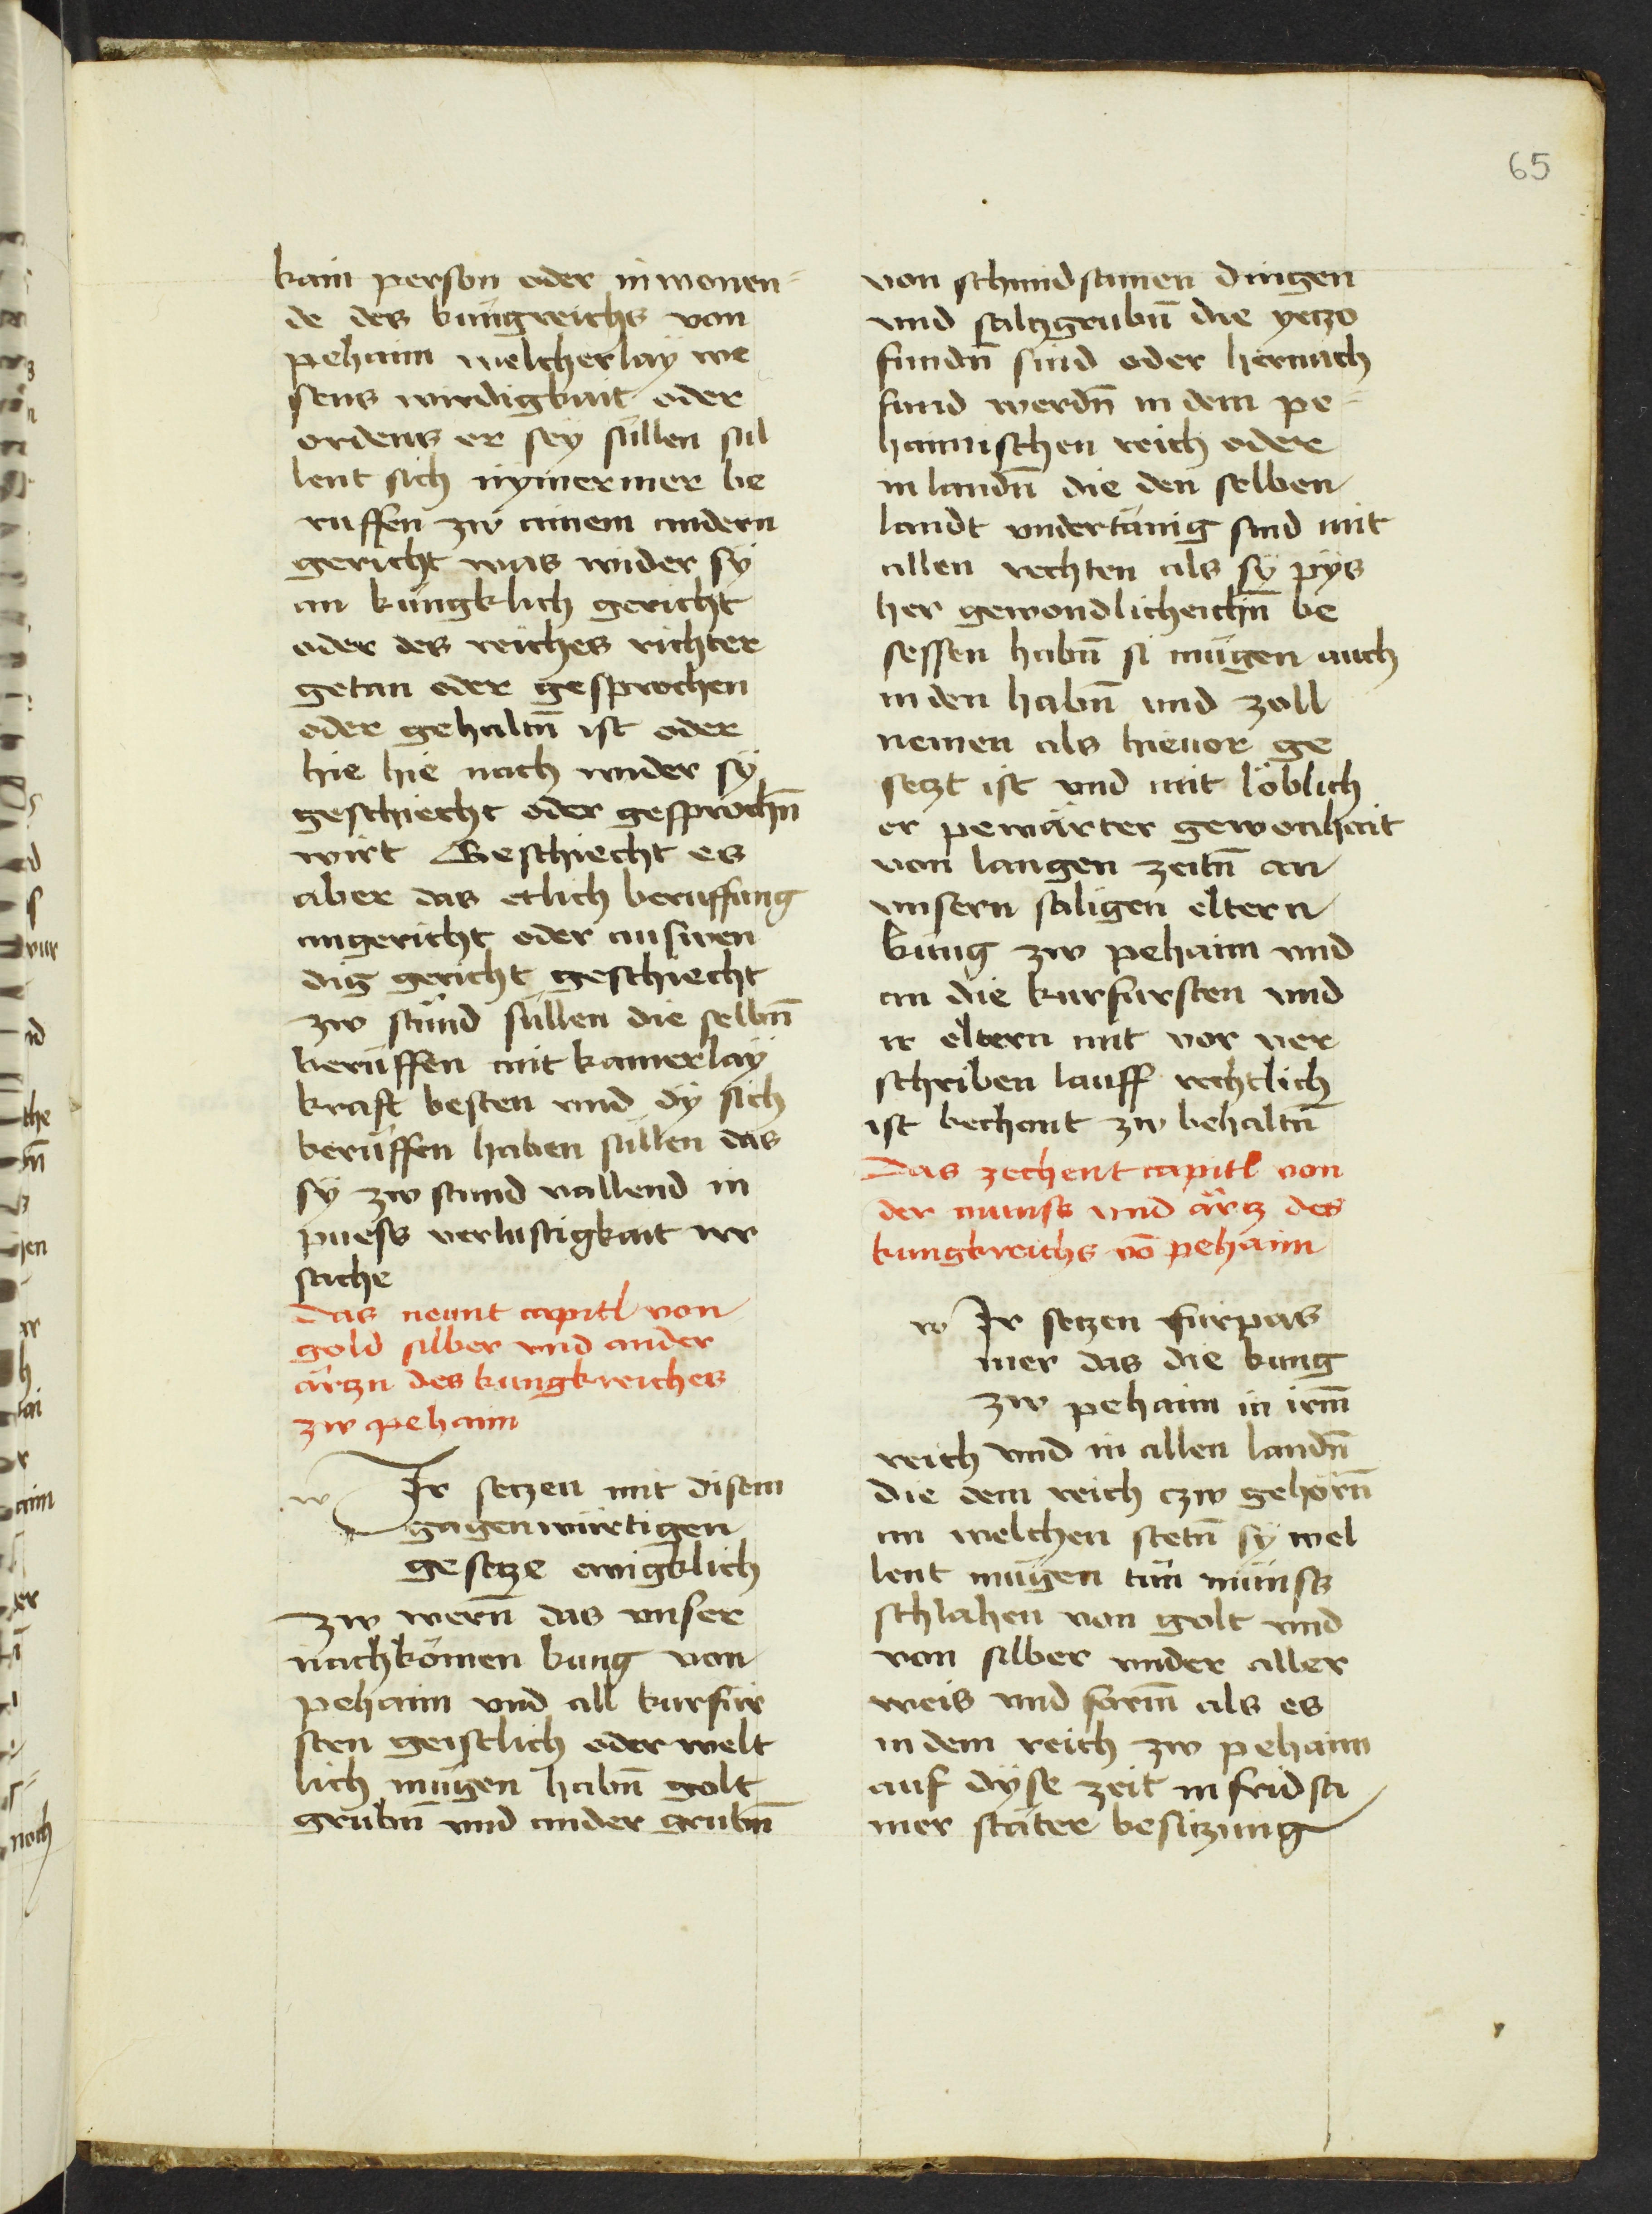 65
kain person oder inwonen-
de des kungreichs von
pehaim welcherlaÿ we
sens wirdigkait oder
ordens er seÿ süllen sul
lent sich nÿmermer be
ruffen zw ainem andern
gericht was wider sÿ
an kungklich gericht
oder des reiches richter
getan oder gesprochen
oder gehaltn̄ ist oder
hie hie nach wider sÿ
geschiecht oder gesprochn̄
wirt Geschiecht es
aber das etlich beruffung
angericht oder auswen
dig gericht geschiecht
zw stund süllen die selbn̄
berüffen mit kainerlaÿ
kraft besten vnd dÿ sich
berüffen haben süllen das
sÿ zw stund vallend in
puess verlustigkait irr
sache
Das neunt capitl von
gold silber vnd ander
ärtzn des kungkreiches
zw pehaim
w Ir setzen mit disem
gagenwürtigen
gesetze ewigklich
zw wern̄ das vnser
nachkömen kung von
pehaim vnd all kurfür
sten geistlich oder welt
lich mügen habn̄ golt
grubn̄ vnd ander grubn̄
von schmidsamen dingen
vnd saltzgrubn̄ die yetzo
fundn̄ sind oder hernach
fund werdn̄ in dem pe-
haimischen reich oder
in landn̄ die den selben
landt vndertänig sind mit
allen rechten als sÿ pÿs
her gewondlicheichn̄ be
sessen habn̄ si mügen auch
in den habn̄ vnd zoll
nemen als hieuor ge
setzt ist vnd mit löblich
er pewärter gewonhait
von langen zeitn̄ an
vnsern säligen eltern
kung zw pehaim vnd
an die kurfursten vnd
ir eltern mit vor ver
schriben lauff rechtlich
ist bechant zw behaltn̄
Das zechent capitl von
der munss vnd ärtz des
kungkreichs vō pehaim
w Ir setzen furpas
mer das die kung
zw pehaim in irm̄
reich vnd in allen landn̄
die dem reich czw gehörn̄
an welchen stetn̄ sÿ wel
lent mügen tün münss
schlahen von golt vnd
von silber vnder aller
weis vnd form̄ als es
in dem reich zw pehaim
auf dÿse zeit in fridsa
mer stäter besitzung